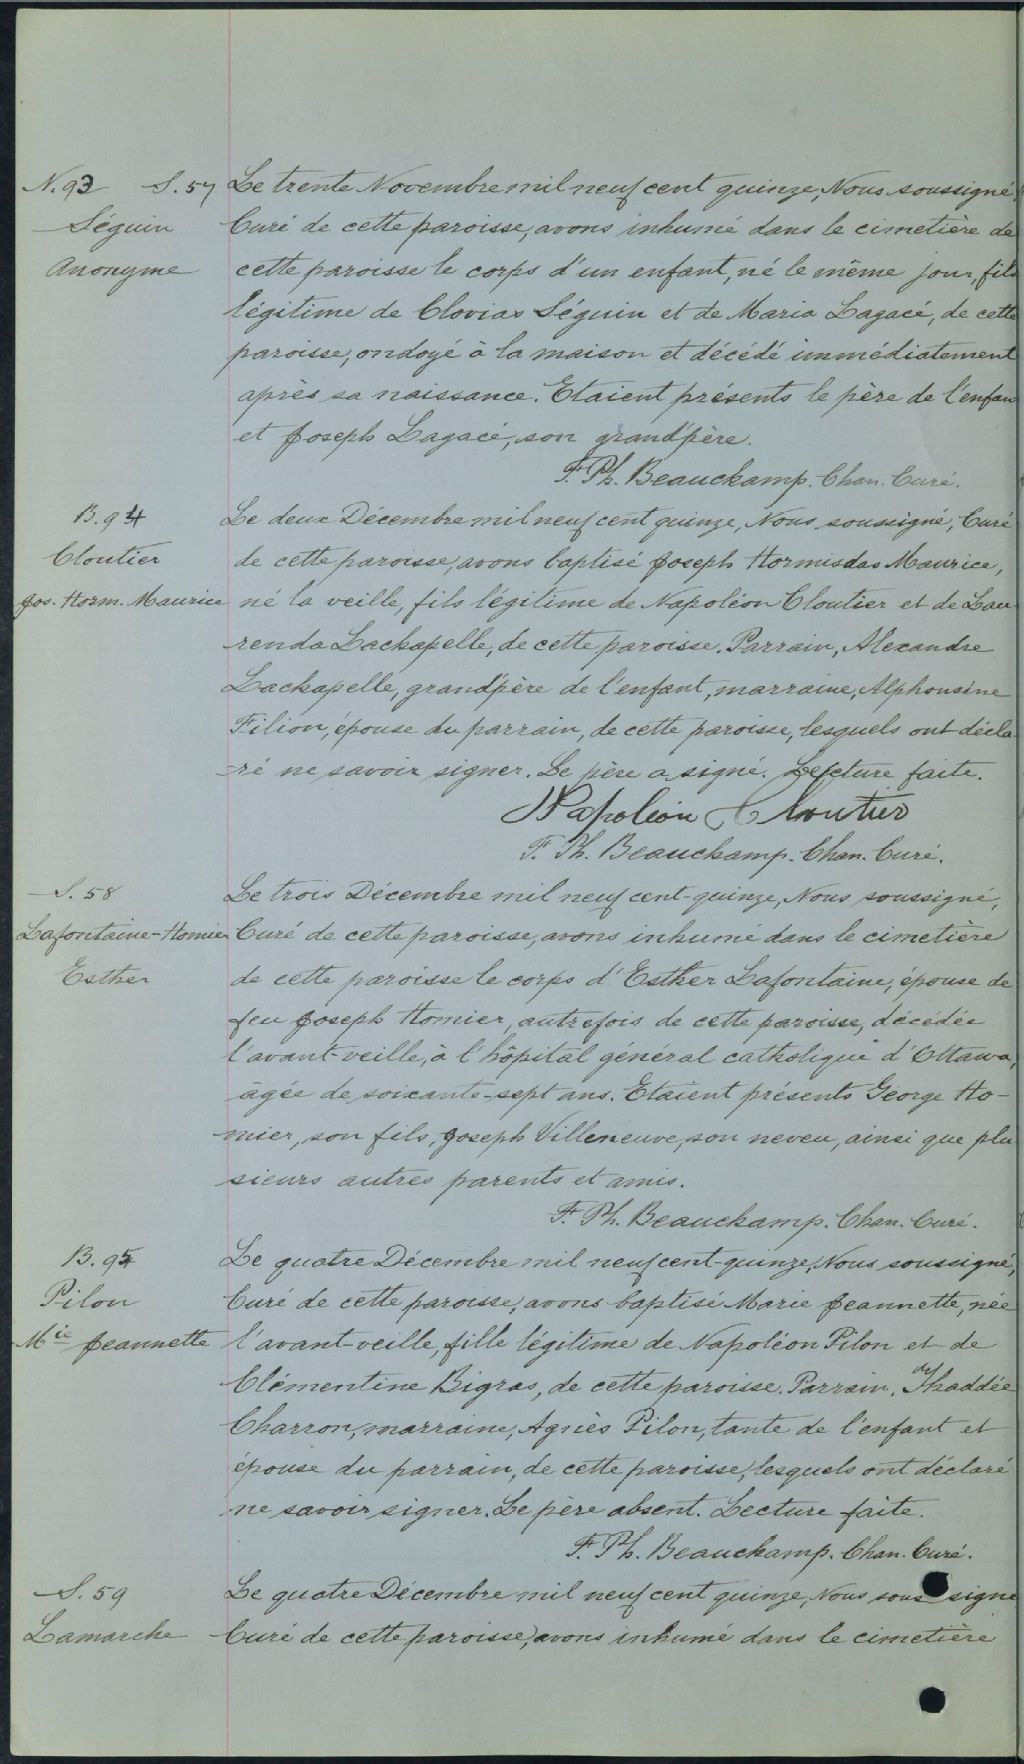 N. 93 S. 57 Le trente Novembre mil neuf cent quinze, Nous soussigné
Séguin Curé de cette paroisse, avons inhumé dans le cimetière de
Anonyme cette paroisse le corps d'un enfant, né le même jour, fils
légitime de Clovias Séguin et de Maria Lagacé, de cette
paroisse, ondoyé à la maison et décédé immédiatement
après sa naissance. Etaient présents le père de l'enfan
et Joseph Lagacé, son grand'père.
F. Ph. Beauchamp. Chan. Curé.
B. 94 Le deux Décembre mil neuf cent quinze, Nous soussigné, Curé
Cloutier de cette paroisse, avons baptisé Joseph Hormisdas Maurice,
Jos. Horm. Maurice né la veille, fils légitime de Napoléon Cloutier et de Lau
renda Lachapelle, de cette paroisse. Parrain, Alexandre
Lachapelle, grand'père de l'enfant, marraine, Alphonsine
Filion, épouse du parrain, de cette paroisse, lesquels ont décla
-ré ne savoir signer. Le père a signé. Lecture faite.
Napoléon Cloutier
F. Ph. Beauchamp. Chan. Curé.
S. 58 Le trois Décembre mil neuf cent-quinze, Nous soussigné,
Lafontaine-Homier Curé de cette paroisse, avons inhumé dans le cimetière
Esther de cette paroisse le corps d'Esther Lafontaine, épouse de
feu Joseph Homier, autrefois de cette paroisse, décédée
l'avant-veille, à l'hôpital général catholique d'Ottawa,
âgée de soixante-sept ans. Etaient présents George Ho-
mier, son fils, Joseph Villeneuve, son neveu, ainsi que plu
sieurs autres parents et amis.
F. Ph. Beauchamp. Chan. Curé.
B. 95 Le quatre Décembre mil neuf cent-quinze, Nous soussigné,
Pilon Curé de cette paroisse, avons baptisé Marie Jeannette, née
Mie Jeannette l'avant-veille, fille légitime de Napoléon Pilon et de
Clémentine Bigras, de cette paroisse. Parrain, Thaddée
Charron, marraine, Agnès Pilon, tante de l'enfant et
épouse du parrain, de cette paroisse, lesquels ont déclaré
ne savoir signer. Le père absent. Lecture faite.
F. Ph. Beauchamp. Chan. Curé.
S. 59 Le quatre Décembre mil neuf cent quinze, Nous sous signé
Lamarche Curé de cette paroisse, avons inhumé dans le cimetière